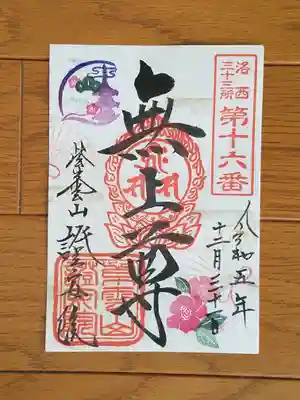 洛西
三十三所
第十六番
無上尊
令和五年
十二月三十一日
紫雲山